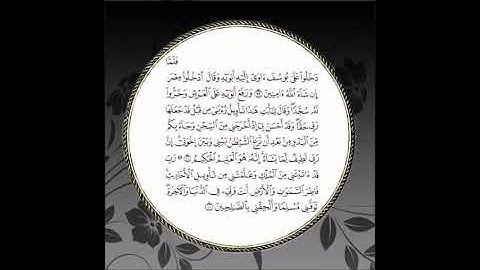 فَلَمَّا
دَخَلُوا۟ عَلَىٰ يُوسُفَ ءَاوَىٰٓ إِلَيْهِ أَبَوَيْهِ وَقَالَ ٱدْخُلُوا۟ مِصْرَ
إِن شَآءَ ٱللَّهُ ءَامِنِينَ ۝٩٩ وَرَفَعَ أَبَوَيْهِ عَلَى ٱلْعَرْشِ وَخَرُّوا۟
لَهُۥ سُجَّدًا ۖ وَقَالَ يَـٰٓأَبَتِ هَـٰذَا تَأْوِيلُ رُءْيَـٰىَ مِن قَبْلُ قَدْ جَعَلَهَا
رَبِّى حَقًّا ۖ وَقَدْ أَحْسَنَ بِىٓ إِذْ أَخْرَجَنِى مِنَ ٱلسِّجْنِ وَجَآءَ بِكُم
مِّنَ ٱلْبَدْوِ مِنۢ بَعْدِ أَن نَّزَغَ ٱلشَّيْطَـٰنُ بَيْنِى وَبَيْنَ إِخْوَتِىٓ ۚ إِنَّ
رَبِّى لَطِيفٌ لِّمَا يَشَآءُ ۚ إِنَّهُۥ هُوَ ٱلْعَلِيمُ ٱلْحَكِيمُ ۝١٠٠ ۞ رَبِّ
قَدْ ءَاتَيْتَنِى مِنَ ٱلْمُلْكِ وَعَلَّمْتَنِى مِن تَأْوِيلِ ٱلْأَحَادِيثِ ۚ
فَاطِرَ ٱلسَّمَـٰوَٰتِ وَٱلْأَرْضِ أَنتَ وَلِىِّۦ فِى ٱلدُّنْيَا وَٱلْـَٔاخِرَةِ ۖ
تَوَفَّنِى مُسْلِمًا وَأَلْحِقْنِى بِٱلصَّـٰلِحِينَ ۝١٠١